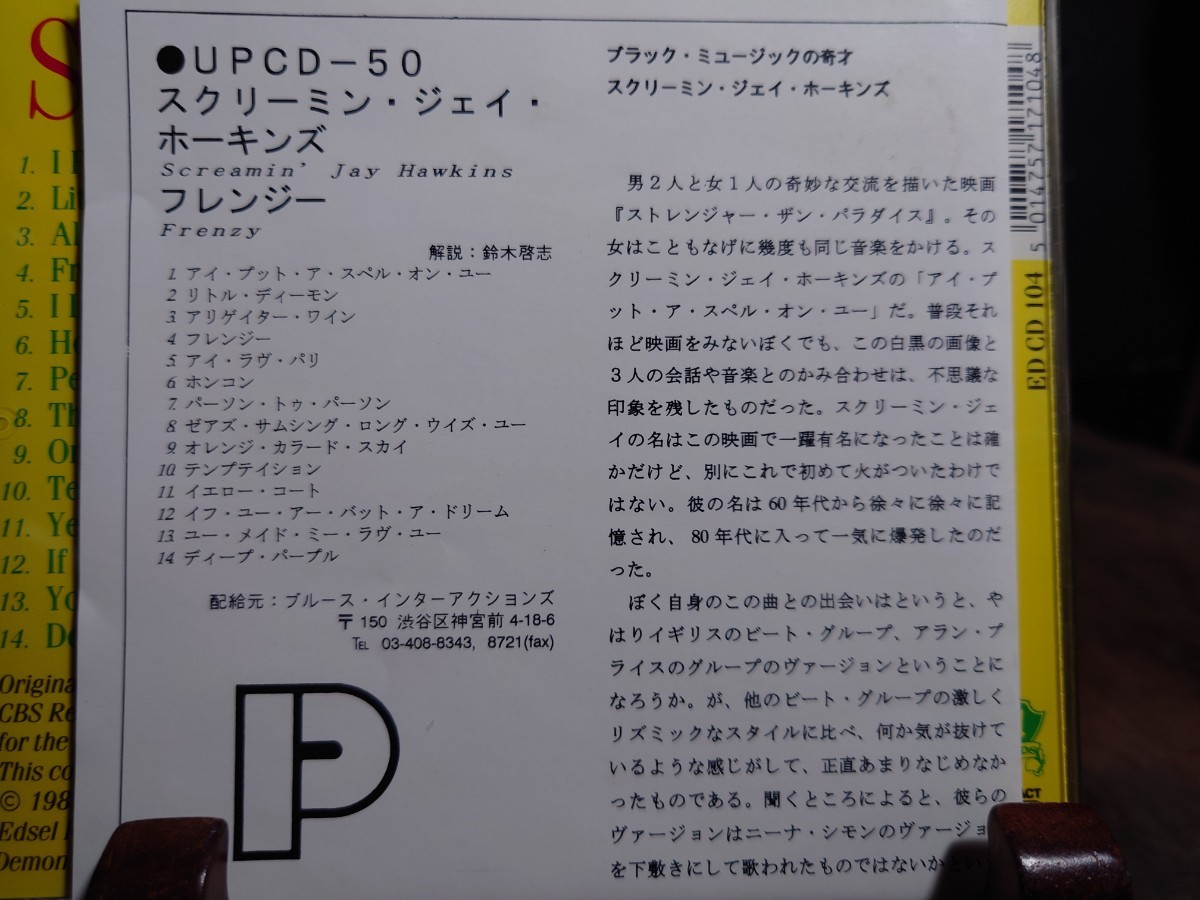 ●UPCD－50
スクリーミン・ジェイ・
ホーキンズ
Screamin' Jay Hawkins
フレンジー
Frenzy
解説：鈴木啓志
1 アイ・プット・ア・スペル・オン・ユー
2 リトル・ディーモン
3. アリゲイター・ワイン
4 フレンジー
5. アイ・ラヴ・パリ
6 ホンコン
7. パーソン・トゥ・パーソン
8 ゼアズ・サムシング・ロング・ウイズ・ユー
9. オレンジ・カラード・スカイ
10. テンプテイション
11. イエロー・コート
12 イフ・ユー・アー・バット・ア・ドリーム
13. ユー・メイド・ミー・ラヴ・ユー
14 ディープ・パープル
配給元：ブルース・インターアクションズ
〒150 渋谷区神宮前 4-18-6
TEL 03-408-8343, 8721(fax)
ブラック・ミュージックの奇才
スクリーミン・ジェイ・ホーキンズ
男２人と女１人の奇妙な交流を描いた映画
『ストレンジャー・ザン・パラダイス』。その
女はこともなげに幾度も同じ音楽をかける。ス
クリーミン・ジェイ・ホーキンズの「アイ・プ
ット・ア・スペル・オン・ユー」だ。普段それ
ほど映画をみないぼくでも、この白黒の画像と
３人の会話や音楽とのかみ合わせは、不思議な
印象を残したものだった。スクリーミン・ジェ
イの名はこの映画で一躍有名になったことは確
かだけど、別にこれで初めて火がついたわけで
はない。彼の名は 60 年代から徐々に徐々に記
憶され、80 年代に入って一気に爆発したのだ
った。
ぼく自身のこの曲との出会いはというと、や
はりイギリスのビート・グループ、アラン・プ
ライスのグループのヴァージョンということに
なろうか。が、他のビート・グループの激しく
リズミックなスタイルに比べ、何か気が抜けて
いるような感じがして、正直あまりなじめなか
ったものである。聞くところによると、彼らの
ヴァージョンはニーナ・シモンのヴァージョ
を下敷きにして歌われたものではないかとい
5 014757 171048
ED CD 104
1. I
2. Li
3. Al
4. Fr
5. I
6. Ho
7. Pe
8. Th
9. Or
10. Te
11. Ye
12. If
13. Yo
14. De
Origina
CBS Re
for the
This co
© 198
Edsel
Demon